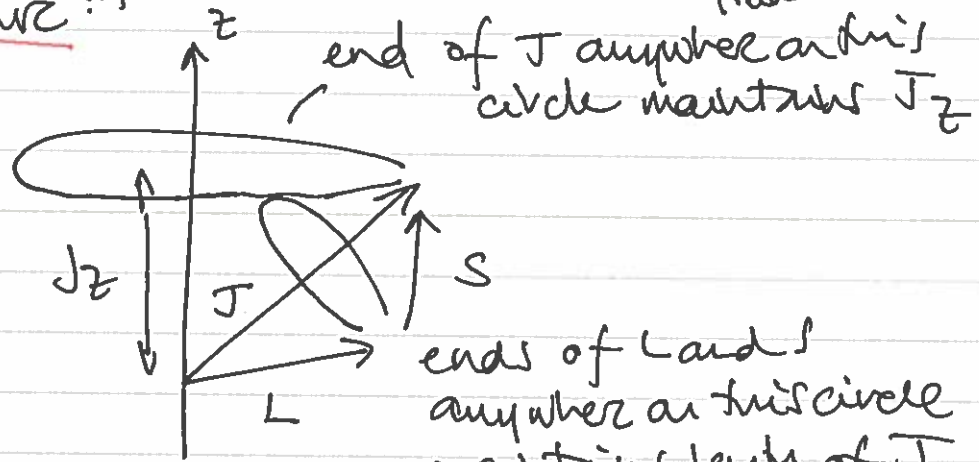 z
end of J anywhere on this
circle maintains J_z
J_z
J
S
L
ends of L and S
anywhere on this circle
of J